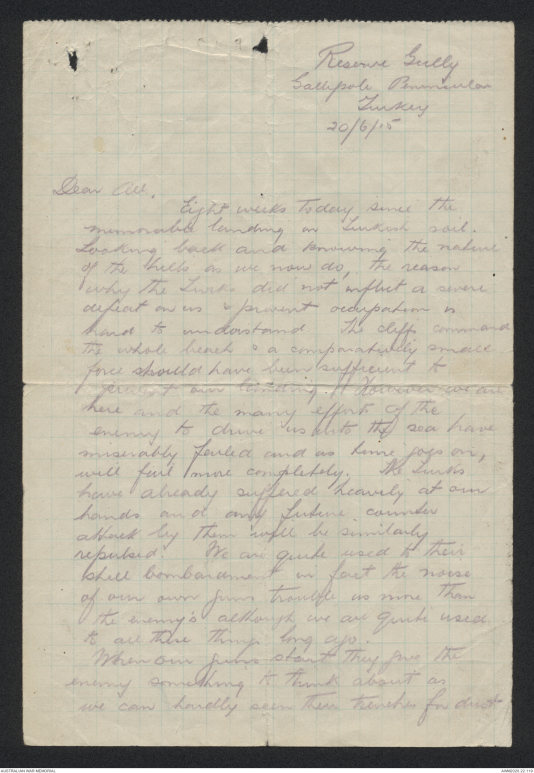 Reserve Gully
Gallipole Peninsular
Turkey
20/6/15
Dear All,
Eight weeks today since the
memorable landing on Turkish soil.
Looking back and knowing the nature
of the hills as we now do, the reason
why the Turks did not inflict a severe
defeat on us & prevent occupation is
hard to understand. The cliffs command
the whole beach & a comparatively small
force should have been sufficient to
prevent our landing. However we are
here and the many efforts of the
enemy to drive us into the sea have
miserably failed and as time goes on,
will fail more completely. The Turks
have already suffered heavily at our
hands and any future counter
attack by them will be similarly
repulsed. We are quite used to their
shell bombardment in fact the noise
of our own guns trouble us more than
the enemy's although we are quite used
to all these things long ago.
When our guns start they give the
enemy something to think about as
we can hardly seen their trenches for dust
AUSTRALIAN WAR MEMORIAL